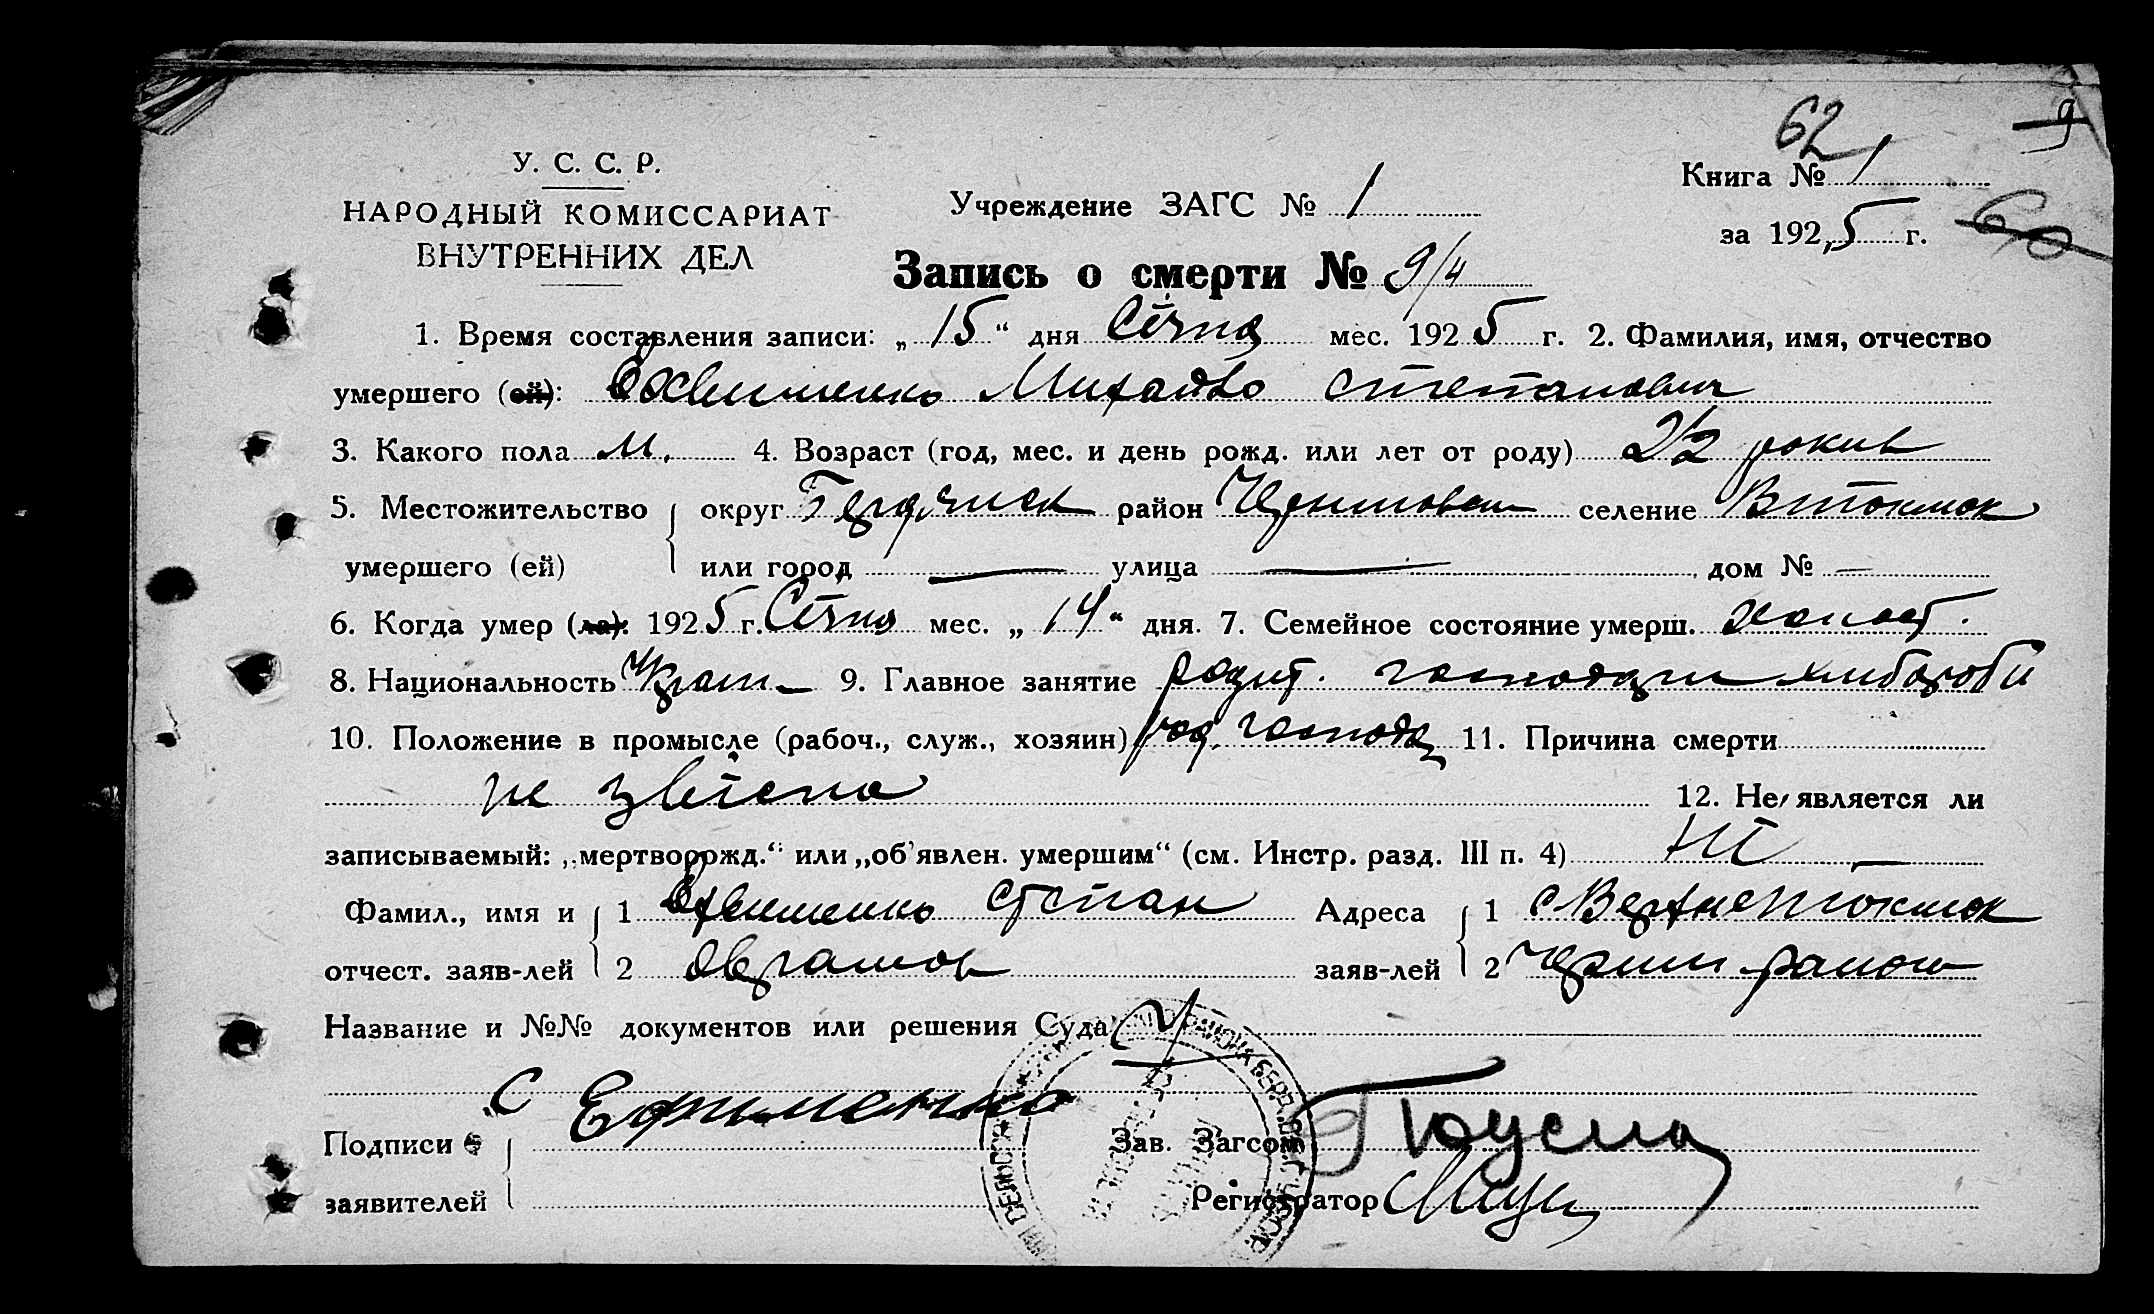 62
9
У. С. С. Р.
НАРОДНЫЙ КОМИССАРИАТ
ВНУТРЕННИХ ДЕЛ
Учреждение ЗАГС № 1
Книга № 1
за 1925 г. 60
Запись о смерти № 9/4
1. Время составления записи: „15“ дня Січня мес. 1925 г. 2. Фамилия, имя, отчество
умершего (ей): Михайло Степанович
3. Какого пола М. 4. Возраст (год, мес. и день рожд. или лет от роду) рокив
5. Местожительство округ Бердянск район селение В Токмок
умершего (ей) или город — улица — дом № —
6. Когда умер (ла): 1925 г. Січня мес. „14“ дня. 7. Семейное состояние умерш. холост.
8. Национальность Украин 9. Главное занятие господари хлибороби
10. Положение в промысле (рабоч., служ., хозяин) 11. Причина смерти
не звісна 12. Не является ли
записываемый: „мертворожд.“ или „об'явлен. умершим“ (см. Инстр. разд. III п. 4) Ні —
Фамил., имя и 1 Степан Адреса 1 с Верхне Токмок
отчест. заяв-лей 2 Аврамов заяв-лей 2 району
Название и №№ документов или решения Суда
С Ефименко
Подписи Зав. Загсом
заявителей Регистратор